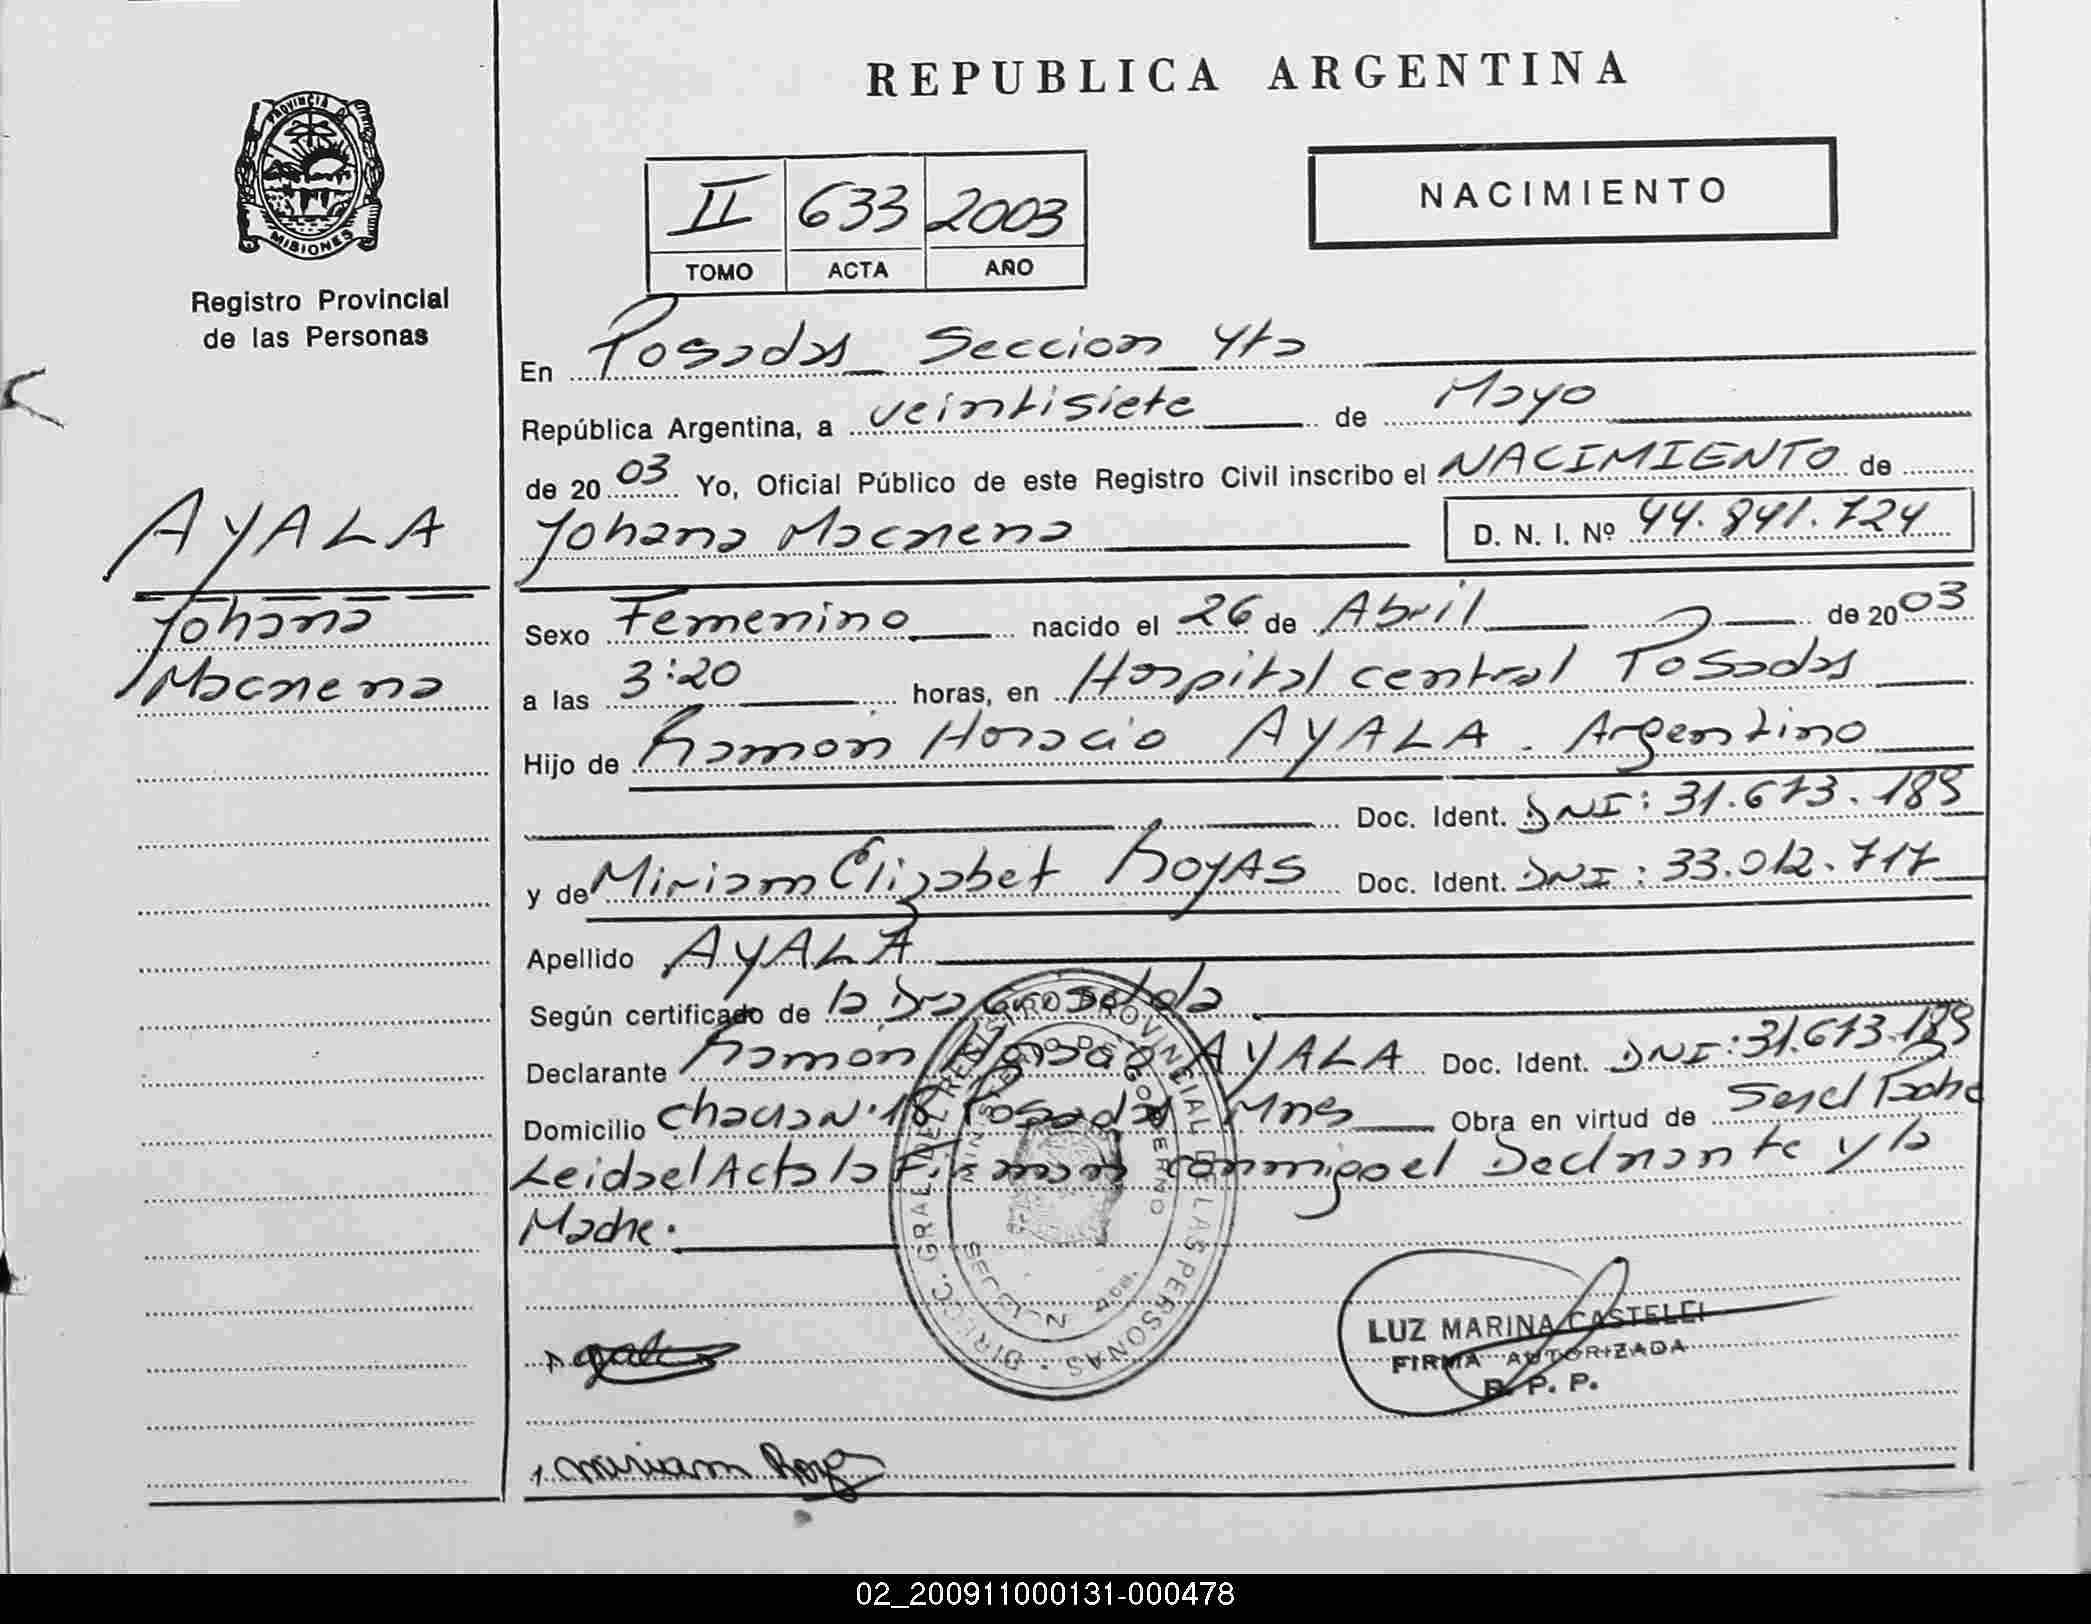 PROVINCIA DE
MISIONES
Registro Provincial
de las Personas
AYALA
Johana
Macarena
REPUBLICA ARGENTINA
II 633 2003
TOMO ACTA AÑO
NACIMIENTO
En Posadas Seccion 4ta
República Argentina, a veintisiete de Mayo
de 2003 Yo, Oficial Público de este Registro Civil inscribo el NACIMIENTO de
Johana Macarena D. N. I. Nº 44.841.724
Sexo Femenino nacido el 26 de Abril de 2003
a las 3:20 horas, en Hospital central Posadas
Hijo de Ramon Horacio AYALA. Argentino
Doc. Ident. DNI: 31.673.189
y de Miriam Elizabet RoyAS Doc. Ident. DNI: 33.012.717
Apellido AYALA
Según certificado de la Dra
Declarante Ramon Horacio AYALA Doc. Ident. DNI: 31.673.189
Domicilio Chacra N° 18 Posadas Mnes Obra en virtud de Ser el Padre
Leida el Acta la Firman conmigo el Declarante y la
Madre.
DIRECC. GRAL DEL REGISTRO PROVINCIAL DE LAS PERSONAS
MINISTERIO DE GOBIERNO
LUZ MARINA CASTELEI
FIRMA AUTORIZADA
R. P. P.
Miriam Roy
02_200911000131-000478